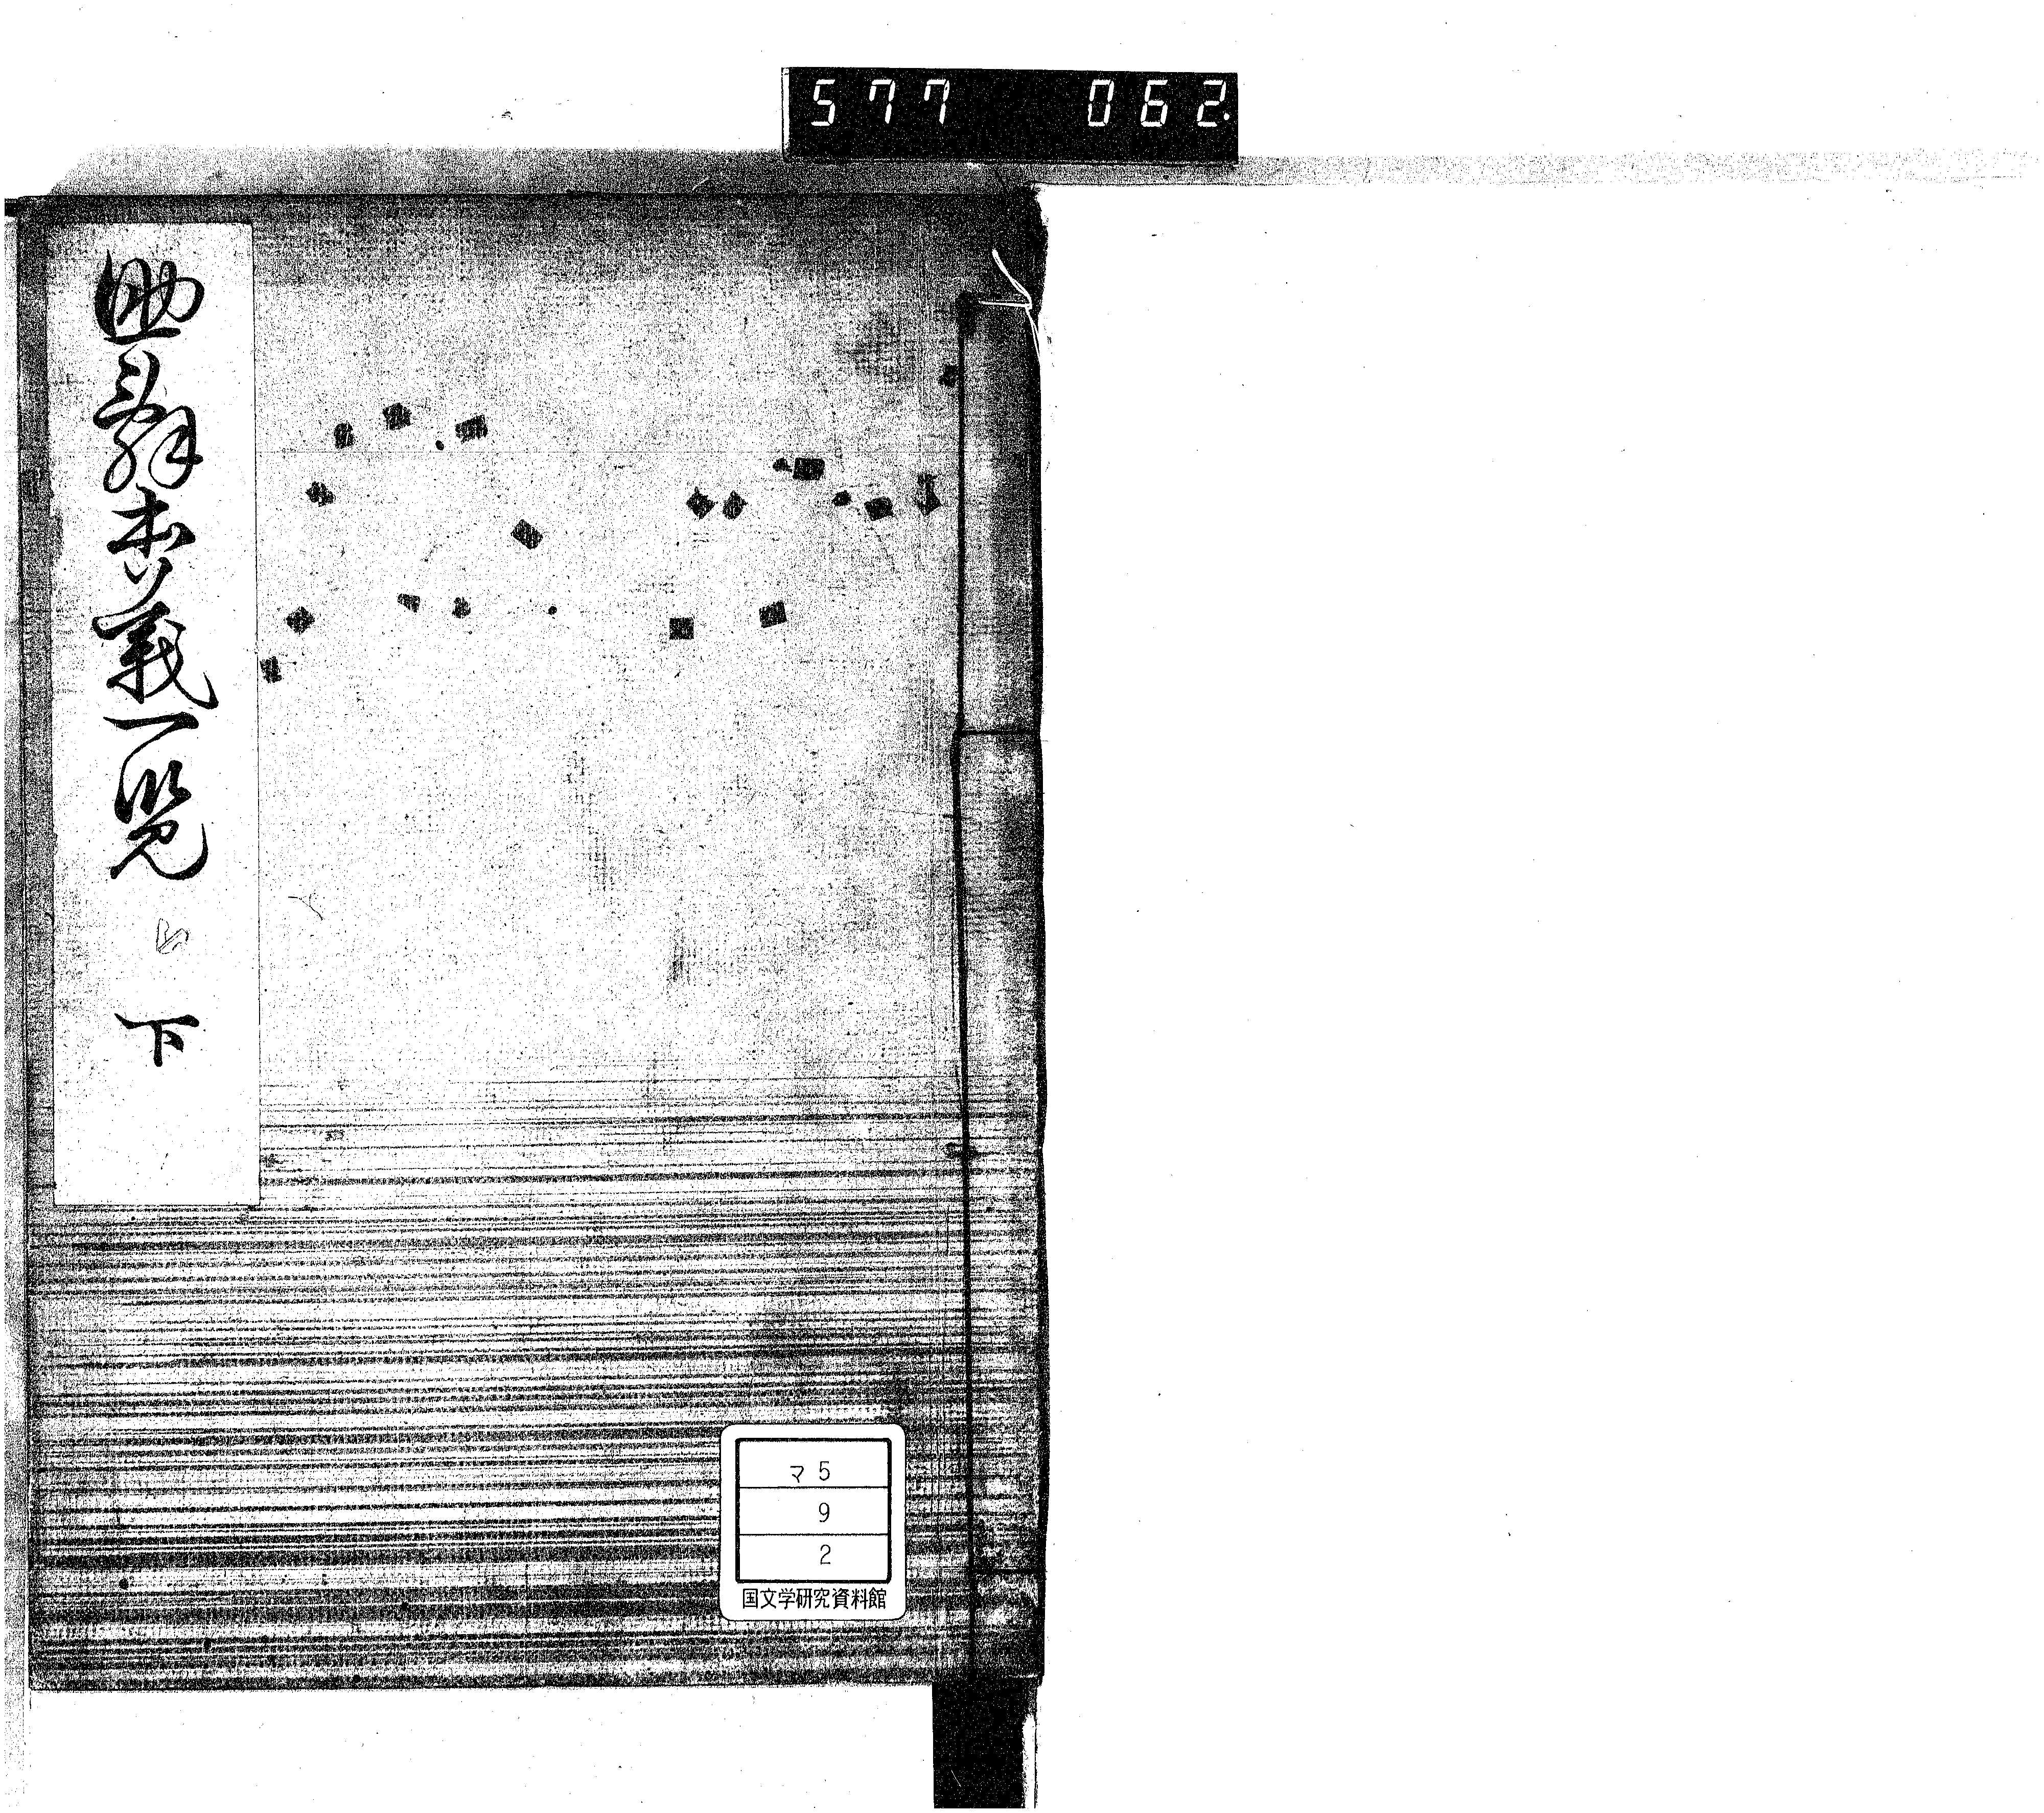 577 062.
助辞本義一覧
下
マ5
9
2
国文学研究資料館